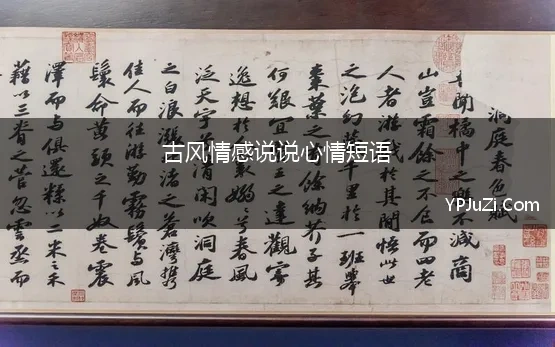 洞庭春色賦
聞橘中之樂不減商
山豈霜餘之不食而四老
人者游戲於其間悟此世
之泡幻藏千里於一班舉
棗葉之有餘納芥子其
何艱宜賢王之達觀寄
逸想於人寰嫋〻兮春風
泛天宇兮清閑吹洞庭
之白浪漲北渚之蒼灣攜
佳人而往游勤霧鬢與風
鬟命黃頭之千奴卷震
澤而與俱還糅以二米之禾
藉以三脊之菅忽雲蒸而
古风情感说说心情短语
YPJuZi.Com